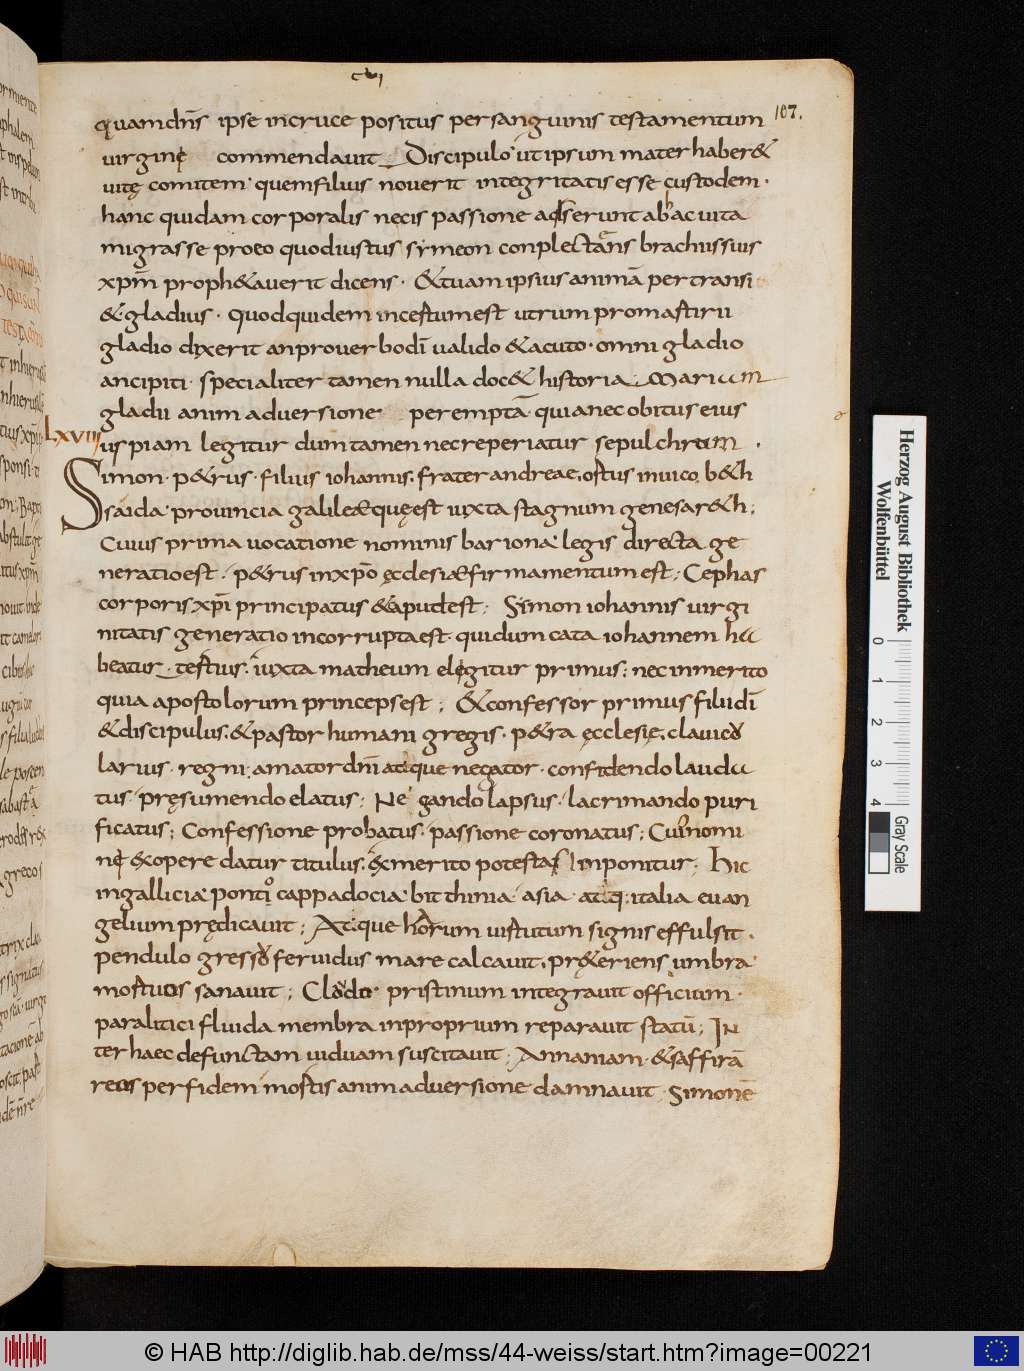 cvi
107.
quam dn̄s ipse in cruce positus per sanguinis testamentum
uirginę commendauit Discipulo ut ipsum mater haber&
uitę comitem quem filius nouerit integritatis esse custodem·
hanc quidam corporalis necis passione adserunt ab hac uita
migrasse pro eo quod iustus symeon conplectans brachiis suis
xpm̄ proph&auerit dicens · &tuam ipsius animā pertransi
&gladius · quod quidem incestum est utrum pro mastirii
gladio dixerit an pro uerbo dī ualido &acuto · omni gladio
ancipiti · specialiter tamen nulla doc& historia Marium
gladii animaduersione peremptā quia nec obitus eius
LXVIII
uspiam legitur dum tamen nec reperiatur sepulchrum ·
Simon · p&rus · filius iohannis · frater andreae, ostus in uico b&h
saida prouincia galileæ quęest iuxta stagnum genesar&h;
Cuius prima uocatione nominis bariona legis directa ge
neratio est · p&rus in xp̄o ęclesiæ firmamentum est; Cephas
corporis xp̄i principatus &aput est; Simon iohannis uirgi
nitatis generatio incorrupta est · qui dum cata iohannem ha
beatur · testius · iuxta matheum elegitur primus; nec inmerito
quia apostolorum princeps est; &confessor primus filii dī
&discipulus · &pastor humani gregis · p&ra ęcclesię, clauicu
larius · regni, amator dn̄i atque negator · confidendo lauda
tus · pręsumendo elatus; Negando lapsus · lacrimando puri
ficatus; Confessione probatus · passione coronatus; Cui nomi
nę &xopere datur titulus, &xmerito potestas Inponitur; Hic
in gallicia ponto cappadocia bitthinia asia atq; italia euan
gelium prędicauit; Atque horum uistutum signis effulsit ·
pendulo gressu feruidus mare calcauit, pr&eriens umbra
mostuos sanauit; Claudo pristinum integrauit officium ·
paralitici fluida membra in proprium reparauit statū; IN
ter haec defunctam uiduam suscitauit; Annaniam &saffirā
reos perfidem mostis animaduersione damnauit · Simonē
Herzog August Bibliothek
Wolfenbüttel
0 1 2 3 4
Gray Scale
© HAB http://diglib.hab.de/mss/44-weiss/start.htm?image=00221